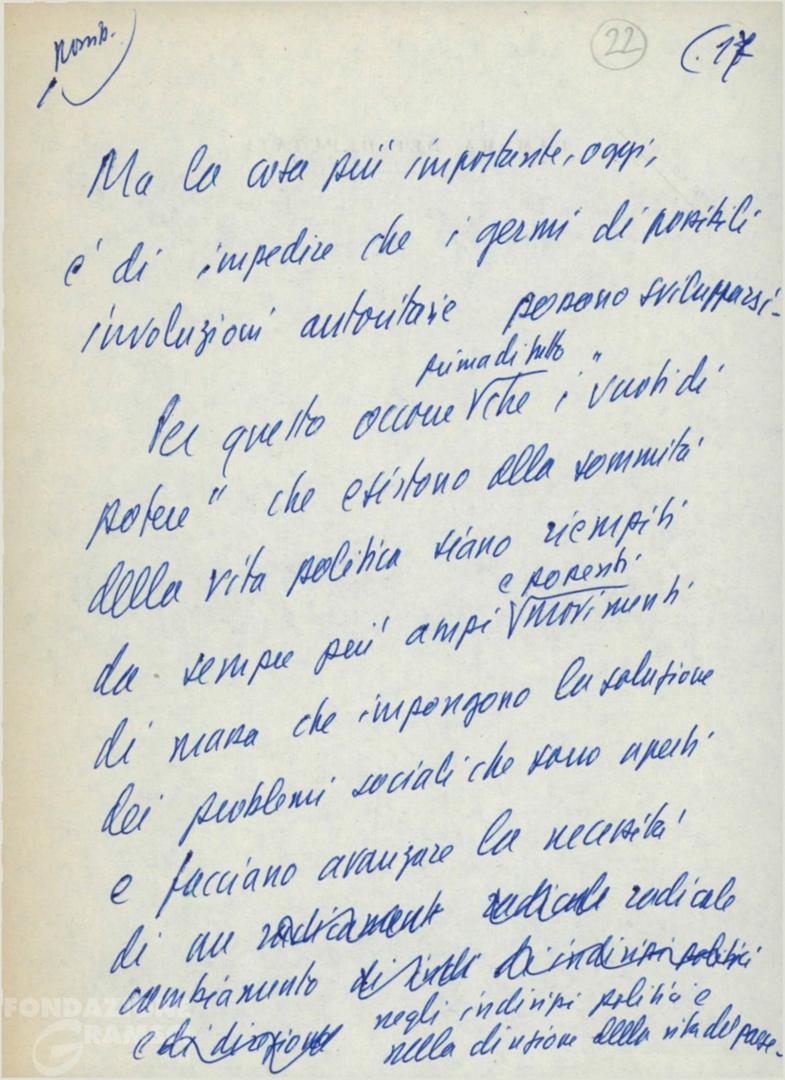 Romb.
22
(. 17
Ma la cosa più importante, oggi,
è di impedire che i germi di possibili
involuzioni autoritarie possano svilupparsi.
prima di tutto
Per questo occorre che i "vuoti di
potere" che esistono alla sommità
della vita politica siano riempiti
e potenti
da sempre più ampi movimenti
di massa che impongono la soluzione
dei problemi sociali che sono aperti
e facciano avanzare la necessità
di un radicale
cambiamento
negli indirizzi politici e
e di direzione nella direzione della vita del paese.
FONDAZIONE
GRAMSCI